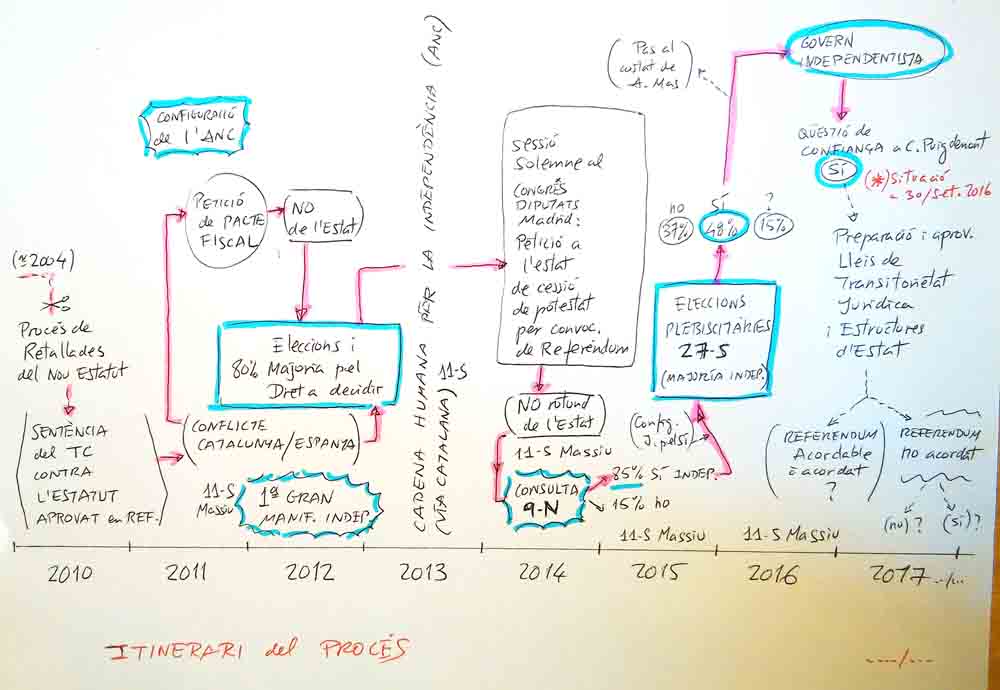 (≈2004)
Procés de
Retallades
del Nou Estatut
SENTÈNCIA
del TC
CONTRA
L'ESTATUT
APROVAT en REF.
CONFIGURACIÓ
de l'ANC
PETICIÓ
de PACTE
FISCAL
NO
de l'Estat
Eleccions i
80% Majoria pel
Dret a decidir
(CONFLICTE
CATALUNYA/ESPANYA)
11-S
Massiu
1ª GRAN
MANIF. INDEP.
CADENA HUMANA PER LA INDEPENDÈNCIA (ANC)
(VIA CATALANA) 11-S
Sessió
Solemne al
CONGRÉS
DIPUTATS
Madrid:
Petició a
l'estat
de cessió
de potestat
per convoc.
de Referèndum
(NO rotund
de l'Estat)
11-S Massiu
CONSULTA
9-N
85% SÍ INDEP.
15% no
(Config.
J. pel Sí)
ELECCIONS
PLEBISCITÀRIES
27-S
(MAJORIA INDEP.)
no
37%
SÍ
48%
?
15%
(Pas al
costat de
A. Mas)
GOVERN
INDEPENDENTISTA
QÜESTIÓ de
CONFIANÇA a C. Puigdemont
SÍ
(*) Situació
~ 30/Set. 2016
Preparació i aprov.
Lleis de
Transitorietat
Jurídica
i Estructures
d'Estat
(REFERENDUM
Acordable
i acordat
?)
REFERENDUM
no acordat
(no)?
(sí)?
11-S Massiu
11-S Massiu
2010
2011
2012
2013
2014
2015
2016
2017 ../...
ITINERARI del PROCÉS
----/---